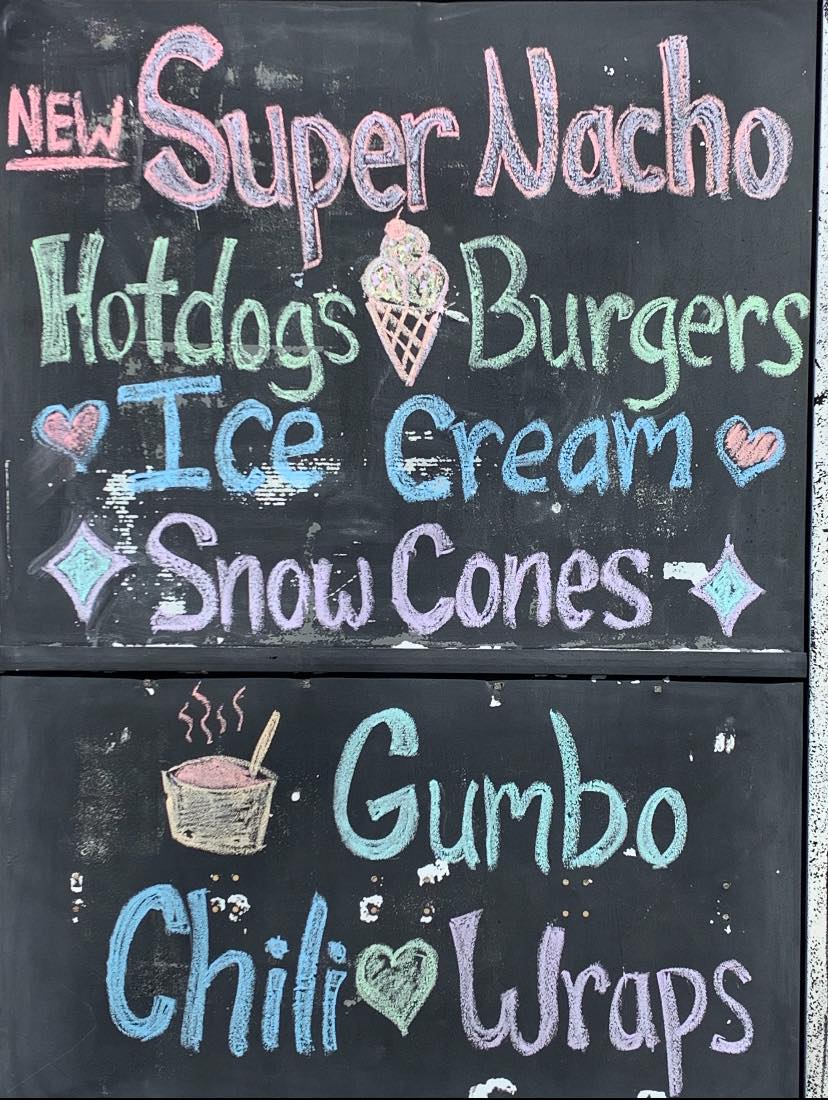 NEW Super Nacho
Hotdogs Burgers
Ice Cream
Snow Cones
Gumbo
Chili Wraps